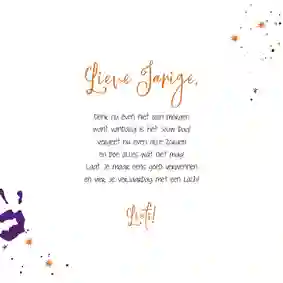 Lieve Jarige,
Denk nu even niet aan morgen
want vandaag is het jouw Dag!
vergeet nu even alle zorgen
en Doe alles wat niet mag!
Laat je maar eens goed verwennen
en vier je verjaardag met een Lach!
Liefs!